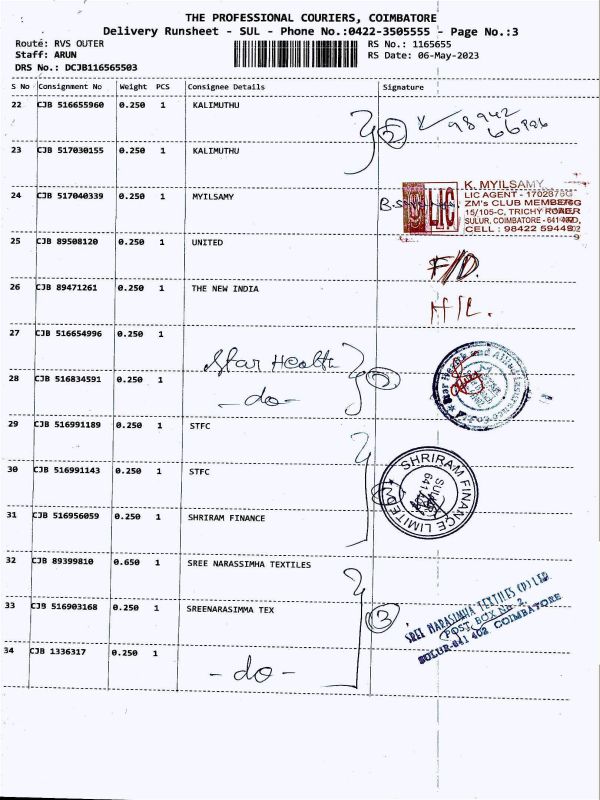 THE PROFESSIONAL COURIERS, COIMBATORE
Delivery Runsheet - SUL - Phone No.:0422-3505555 - Page No.:3
Route: RVS OUTER
RS No.: 1165655
Staff: ARUN
RS Date: 06-May-2023
DRS No.: DCJB116565503
S No Consignment No Weight PCS Consignee Details Signature
22 CJB 516655960 0.250 1 KALIMUTHU
2
98942
23 CJB 517030155 0.250 1 KALIMUTHU
24 CJB 517040339 0.250 1 MYILSAMY
LIC
K. MYILSAMY
LIC AGENT
ZM's CLUB MEMBER
15/105-C, TRICHY ROAD,
SULUR, COIMBATORE - 641 402
CELL : 98422 59449
25 CJB 89508120 0.250 1 UNITED
F/D.
26 CJB 89471261 0.250 1 THE NEW INDIA
27 CJB 516654996 0.250 1
Star Health
28 CJB 516834591 0.250 1
- do -
29 CJB 516991189 0.250 1 STFC
30 CJB 516991143 0.250 1 STFC
SHRIRAM FINANCE LIMITED
SULUR
31 CJB 516956059 0.250 1 SHRIRAM FINANCE
32 CJB 89399810 0.650 1 SREE NARASSIMHA TEXTILES
33 CJB 516903168 0.250 1 SREENARASIMMA TEX
3
SREE NARASIMHA TEXTILES (P) LTD
POST BOX No. 2,
SULUR-641 402 COIMBATORE
34 CJB 1336317 0.250 1
- do -